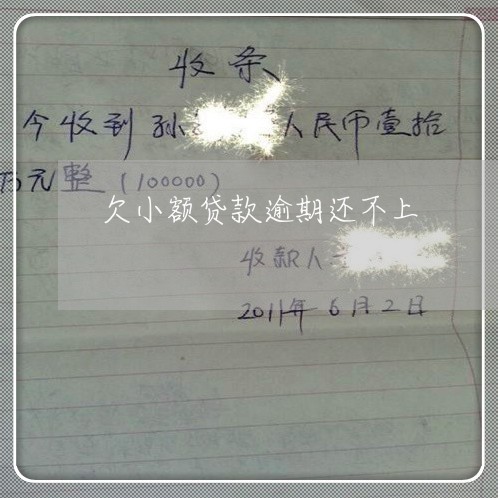 收条
今收到孙 人民币壹拾
万元整(100000)
欠小额贷款逾期还不上
收款人
2011年6月2日